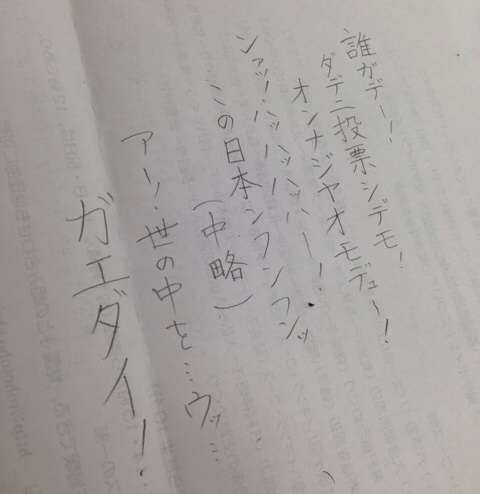 誰ガデー!
ダデニ投票シデモ!
オンナジヤオモデュー!
ンァッ!ハッハッハッハー!
この日本ンフンフンッ
(中略)
アー!世の中を…ウッ…
ガエダイ!